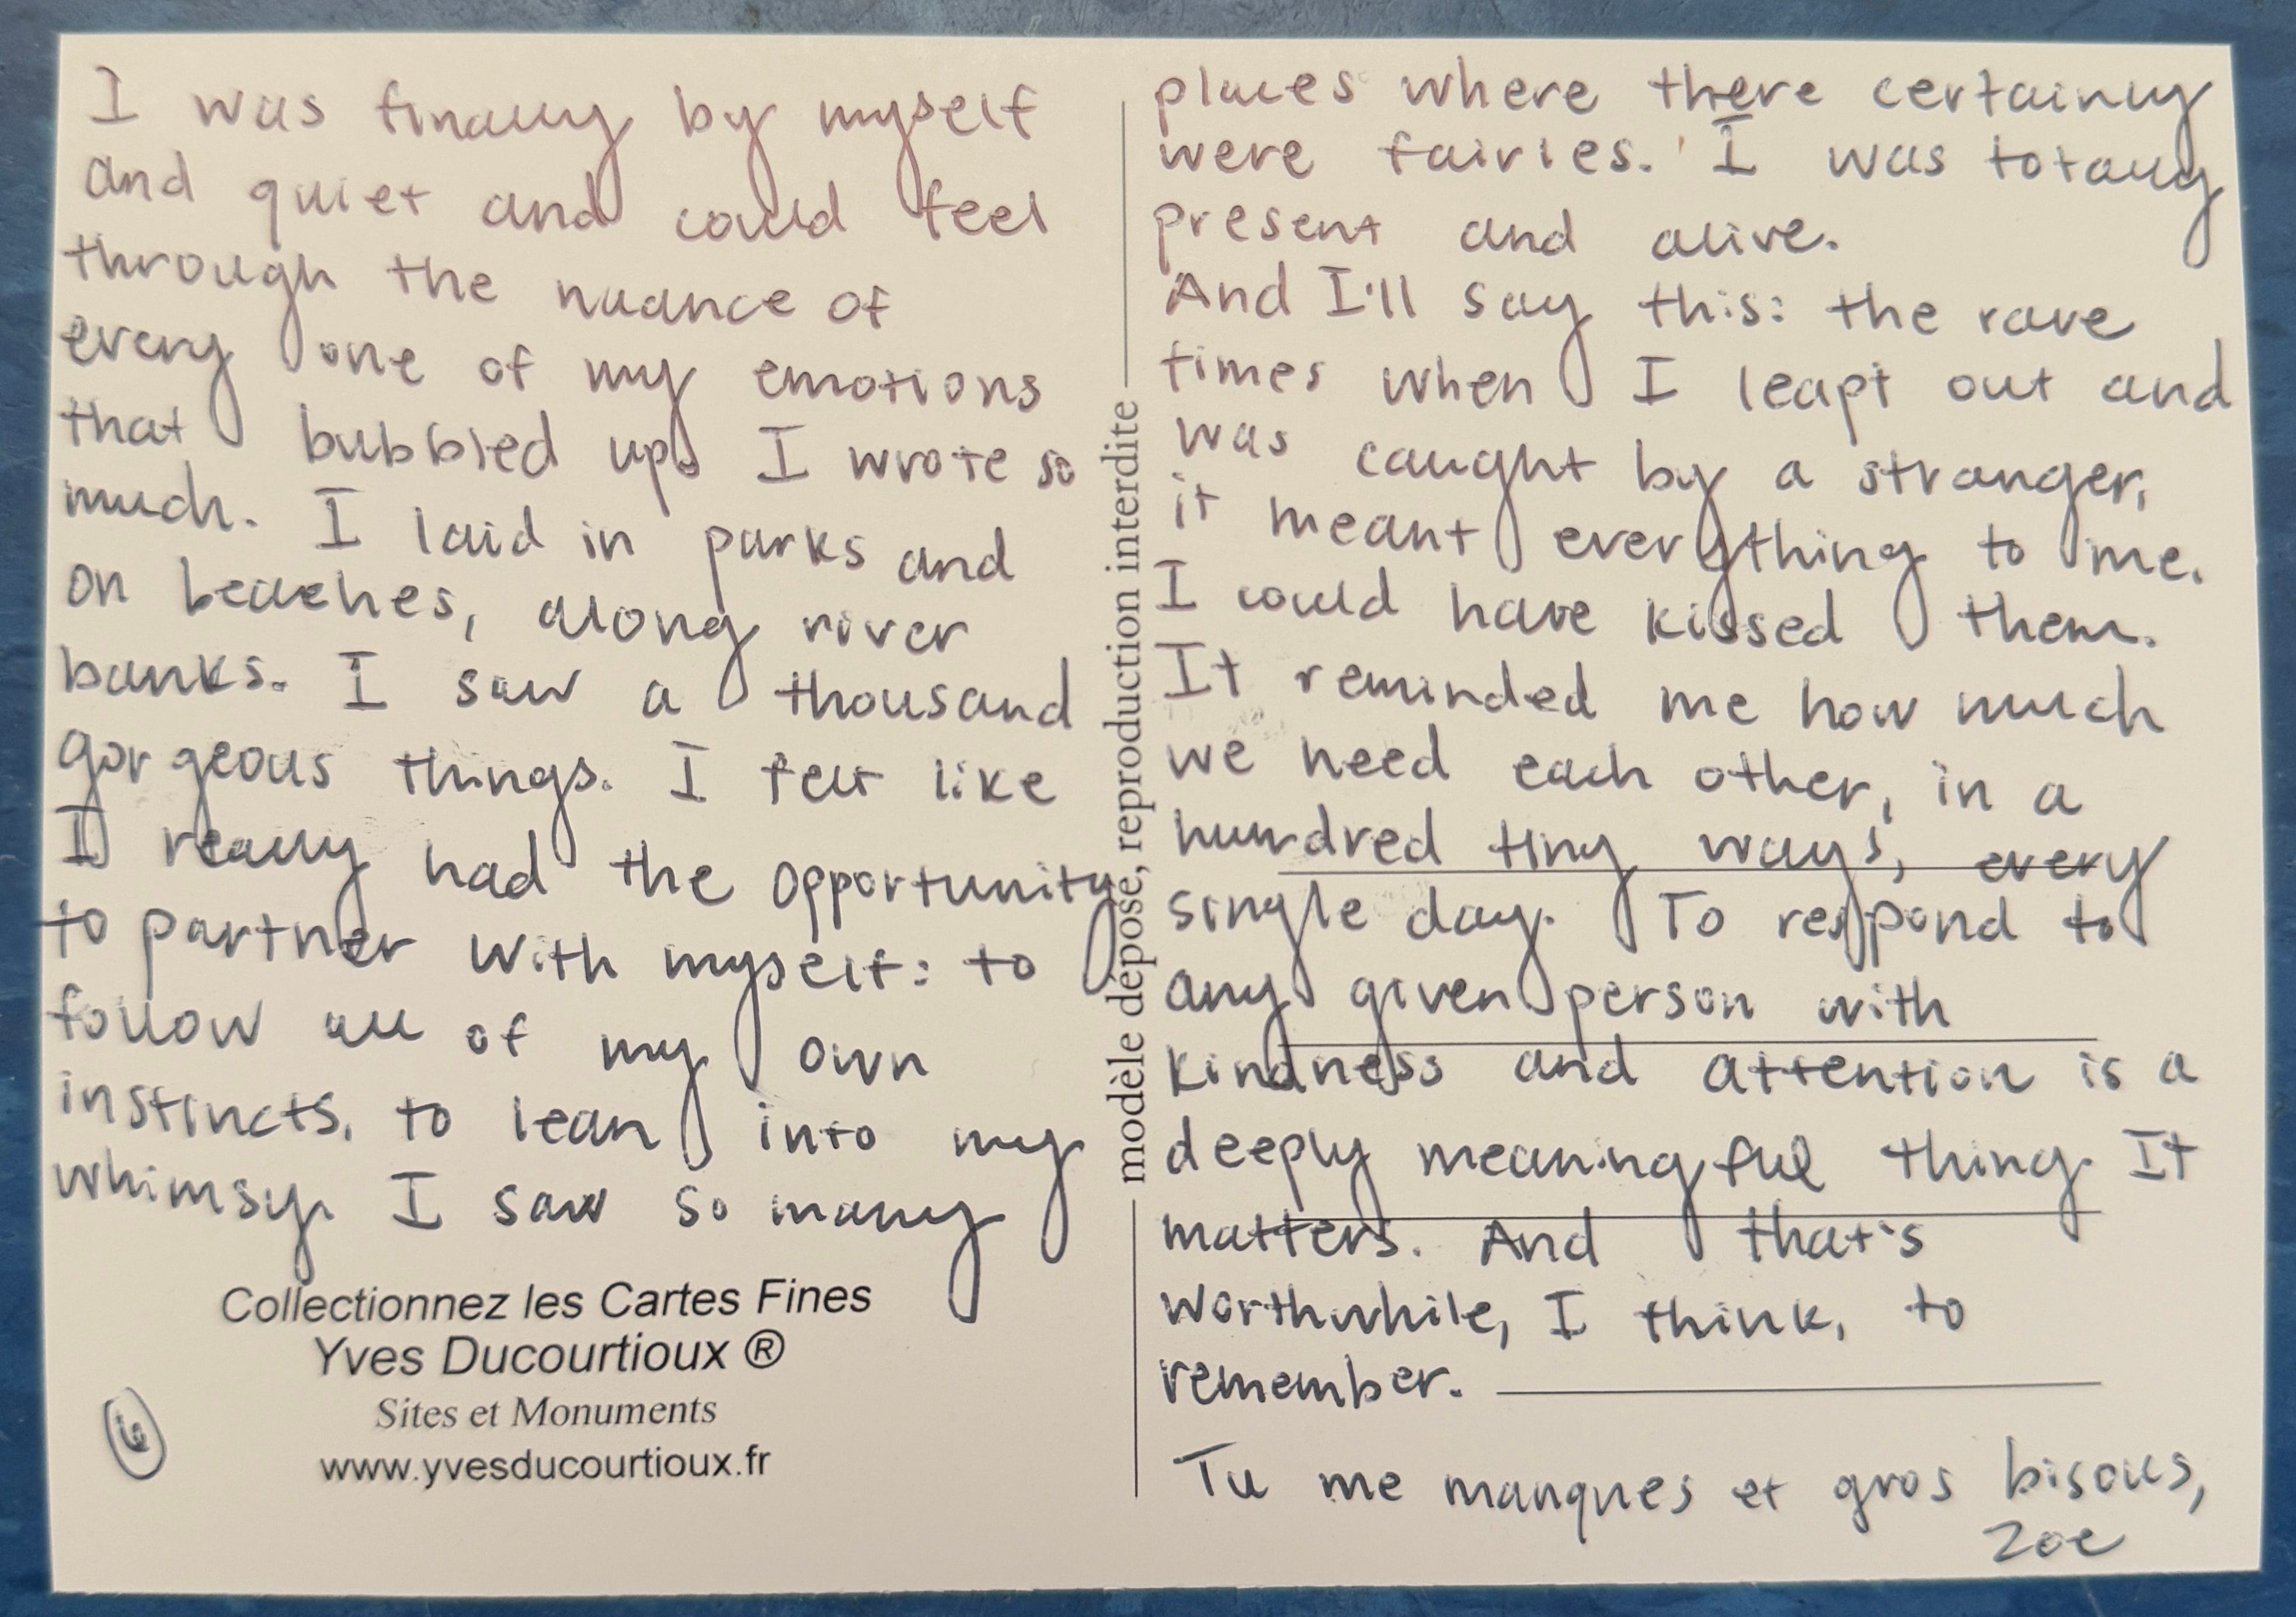 I was finally by myself
and quiet and could feel
through the nuance of
every one of my emotions
that bubbled up. I wrote so
much. I laid in parks and
on beaches, along river
banks. I saw a thousand
gorgeous things. I felt like
I really had the opportunity
to partner with myself: to
follow all of my own
instincts, to lean into my
whimsy. I saw so many
Collectionnez les Cartes Fines
Yves Ducourtioux ®
Sites et Monuments
www.yvesducourtioux.fr
modèle déposé, reproduction interdite
places where there certainly
were fairies. I was totally
present and alive.
And I'll say this: the rare
times when I leapt out and
was caught by a stranger,
it meant everything to me.
I could have kissed them.
It reminded me how much
we need each other, in a
hundred tiny ways, every
single day. To respond to
any given person with
kindness and attention is a
deeply meaningful thing. It
matters. And that's
worthwhile, I think, to
remember.
Tu me manques et gros bisous,
Zoe